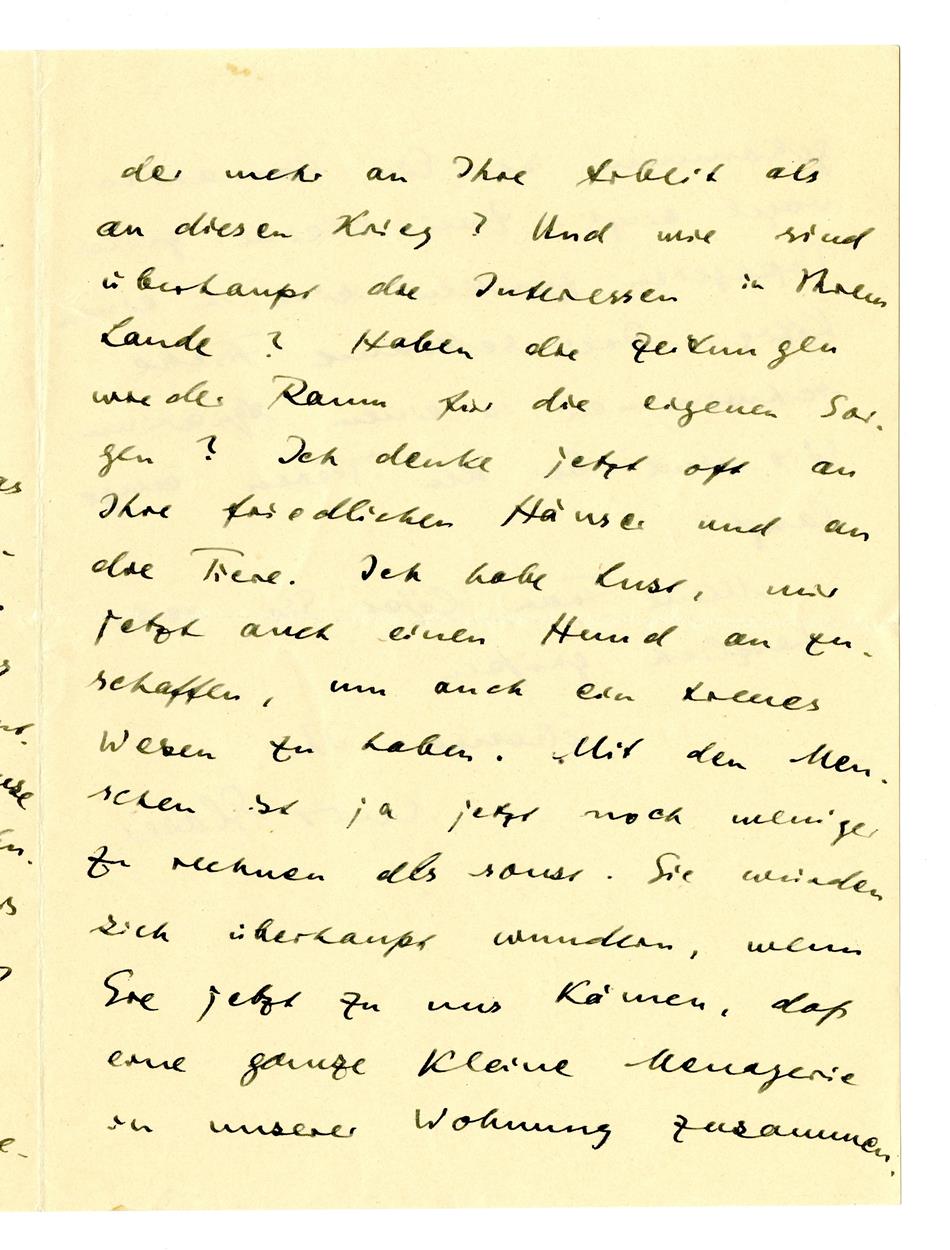 der mehr an Ihre Arbeit als
an diesen Krieg? Und wie sind
überhaupt die Interessen in Ihrem
Lande? Haben die Zeitungen
wieder Raum für die eigenen Sor-
gen? Ich denke jetzt oft an
Ihre friedlichen Häuser und an
die Tiere. Ich habe Lust, mir
jetzt auch einen Hund an zu-
schaffen, um auch ein treues
Wesen zu haben. Mit den Men-
schen ist ja jetzt noch weniger
zu rechnen als sonst. Sie würden
sich überhaupt wundern, wenn
Sie jetzt zu uns kämen, daß
eine ganze kleine Menagerie
in unserer Wohnung zusammen-